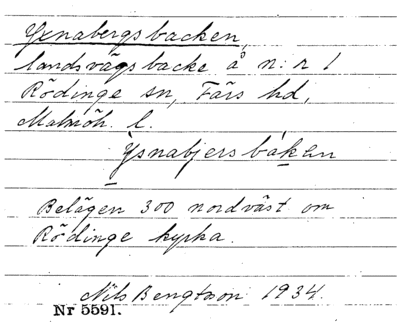 Ysnabergsbacken,
landsvägsbacke å n:r 1
Rödinge sn, Färs hd,
Malmöh. l.
Ysnabjersbákan
Belägen 300 nordväst om
Rödinge kyrka.
Nils Bengtsson 1934.
Nr 5591.